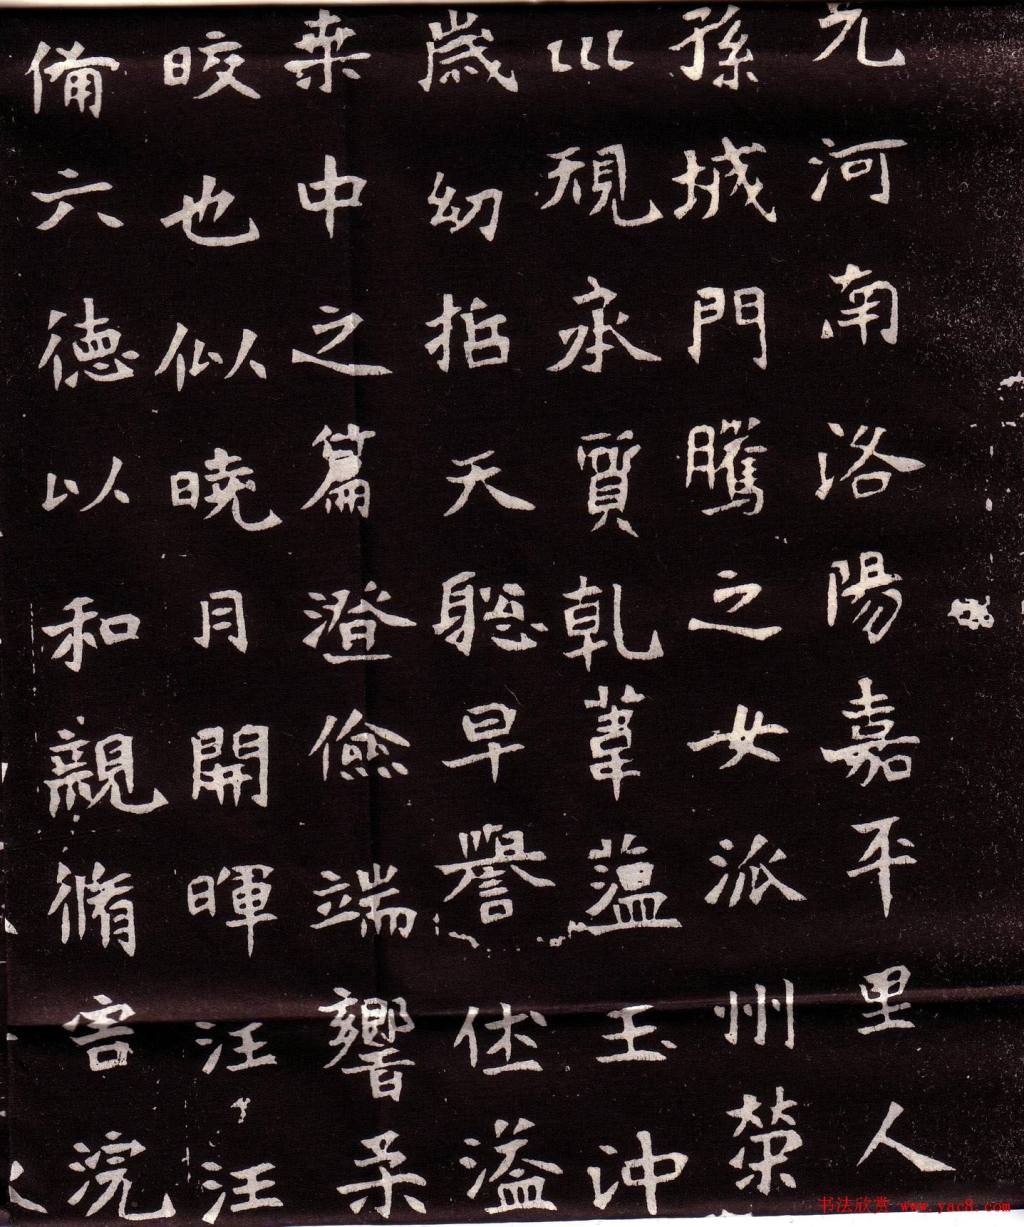 元河南洛陽嘉平里人
孫城門騰之女派州榮
巛規承質乾葦蘊玉沖
歲幼天聦早譽溢
桒中之篇澄儉端響柔
晈也似曉月開暉汪汪
備六德以和親脩害浣
书法欣赏 www.yac8.com